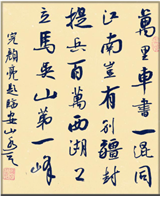 萬里車書一混同
江南豈有別疆封
提兵百萬西湖上
立馬吳山第一峰
完顏亮題臨安山